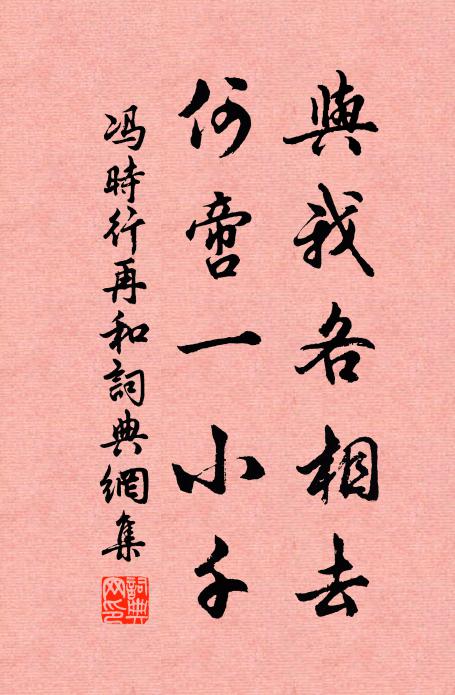 與我各相去
何啻一小千
馮時行再和詞典網集
詞典網印